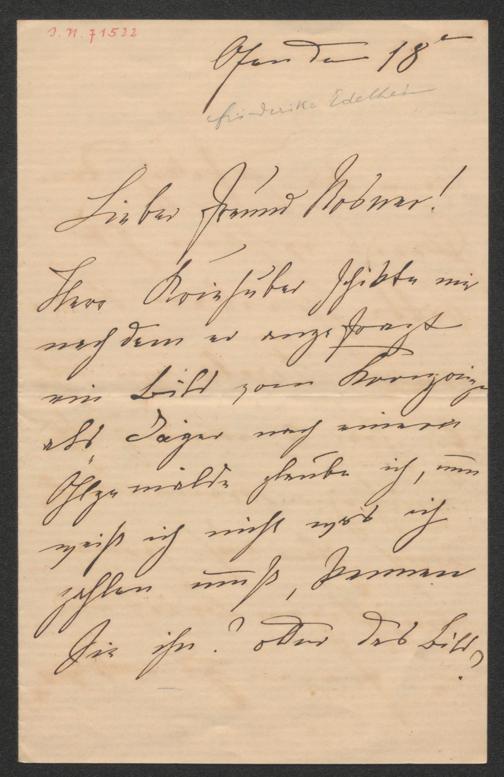 I.N. 71522
Ofen den 18ten
Friederike Edelheim
Lieber Freund Rosner!
Herr Kriehuber schikte mir
nach dem er angefragt
ein Bild vom Kronprinzen
als Jäger nach einem
Öhlgemälde glaube ich, nun
weiß ich nicht was ich
zahlen muß, kennen
Sie ihn? oder das Bild?